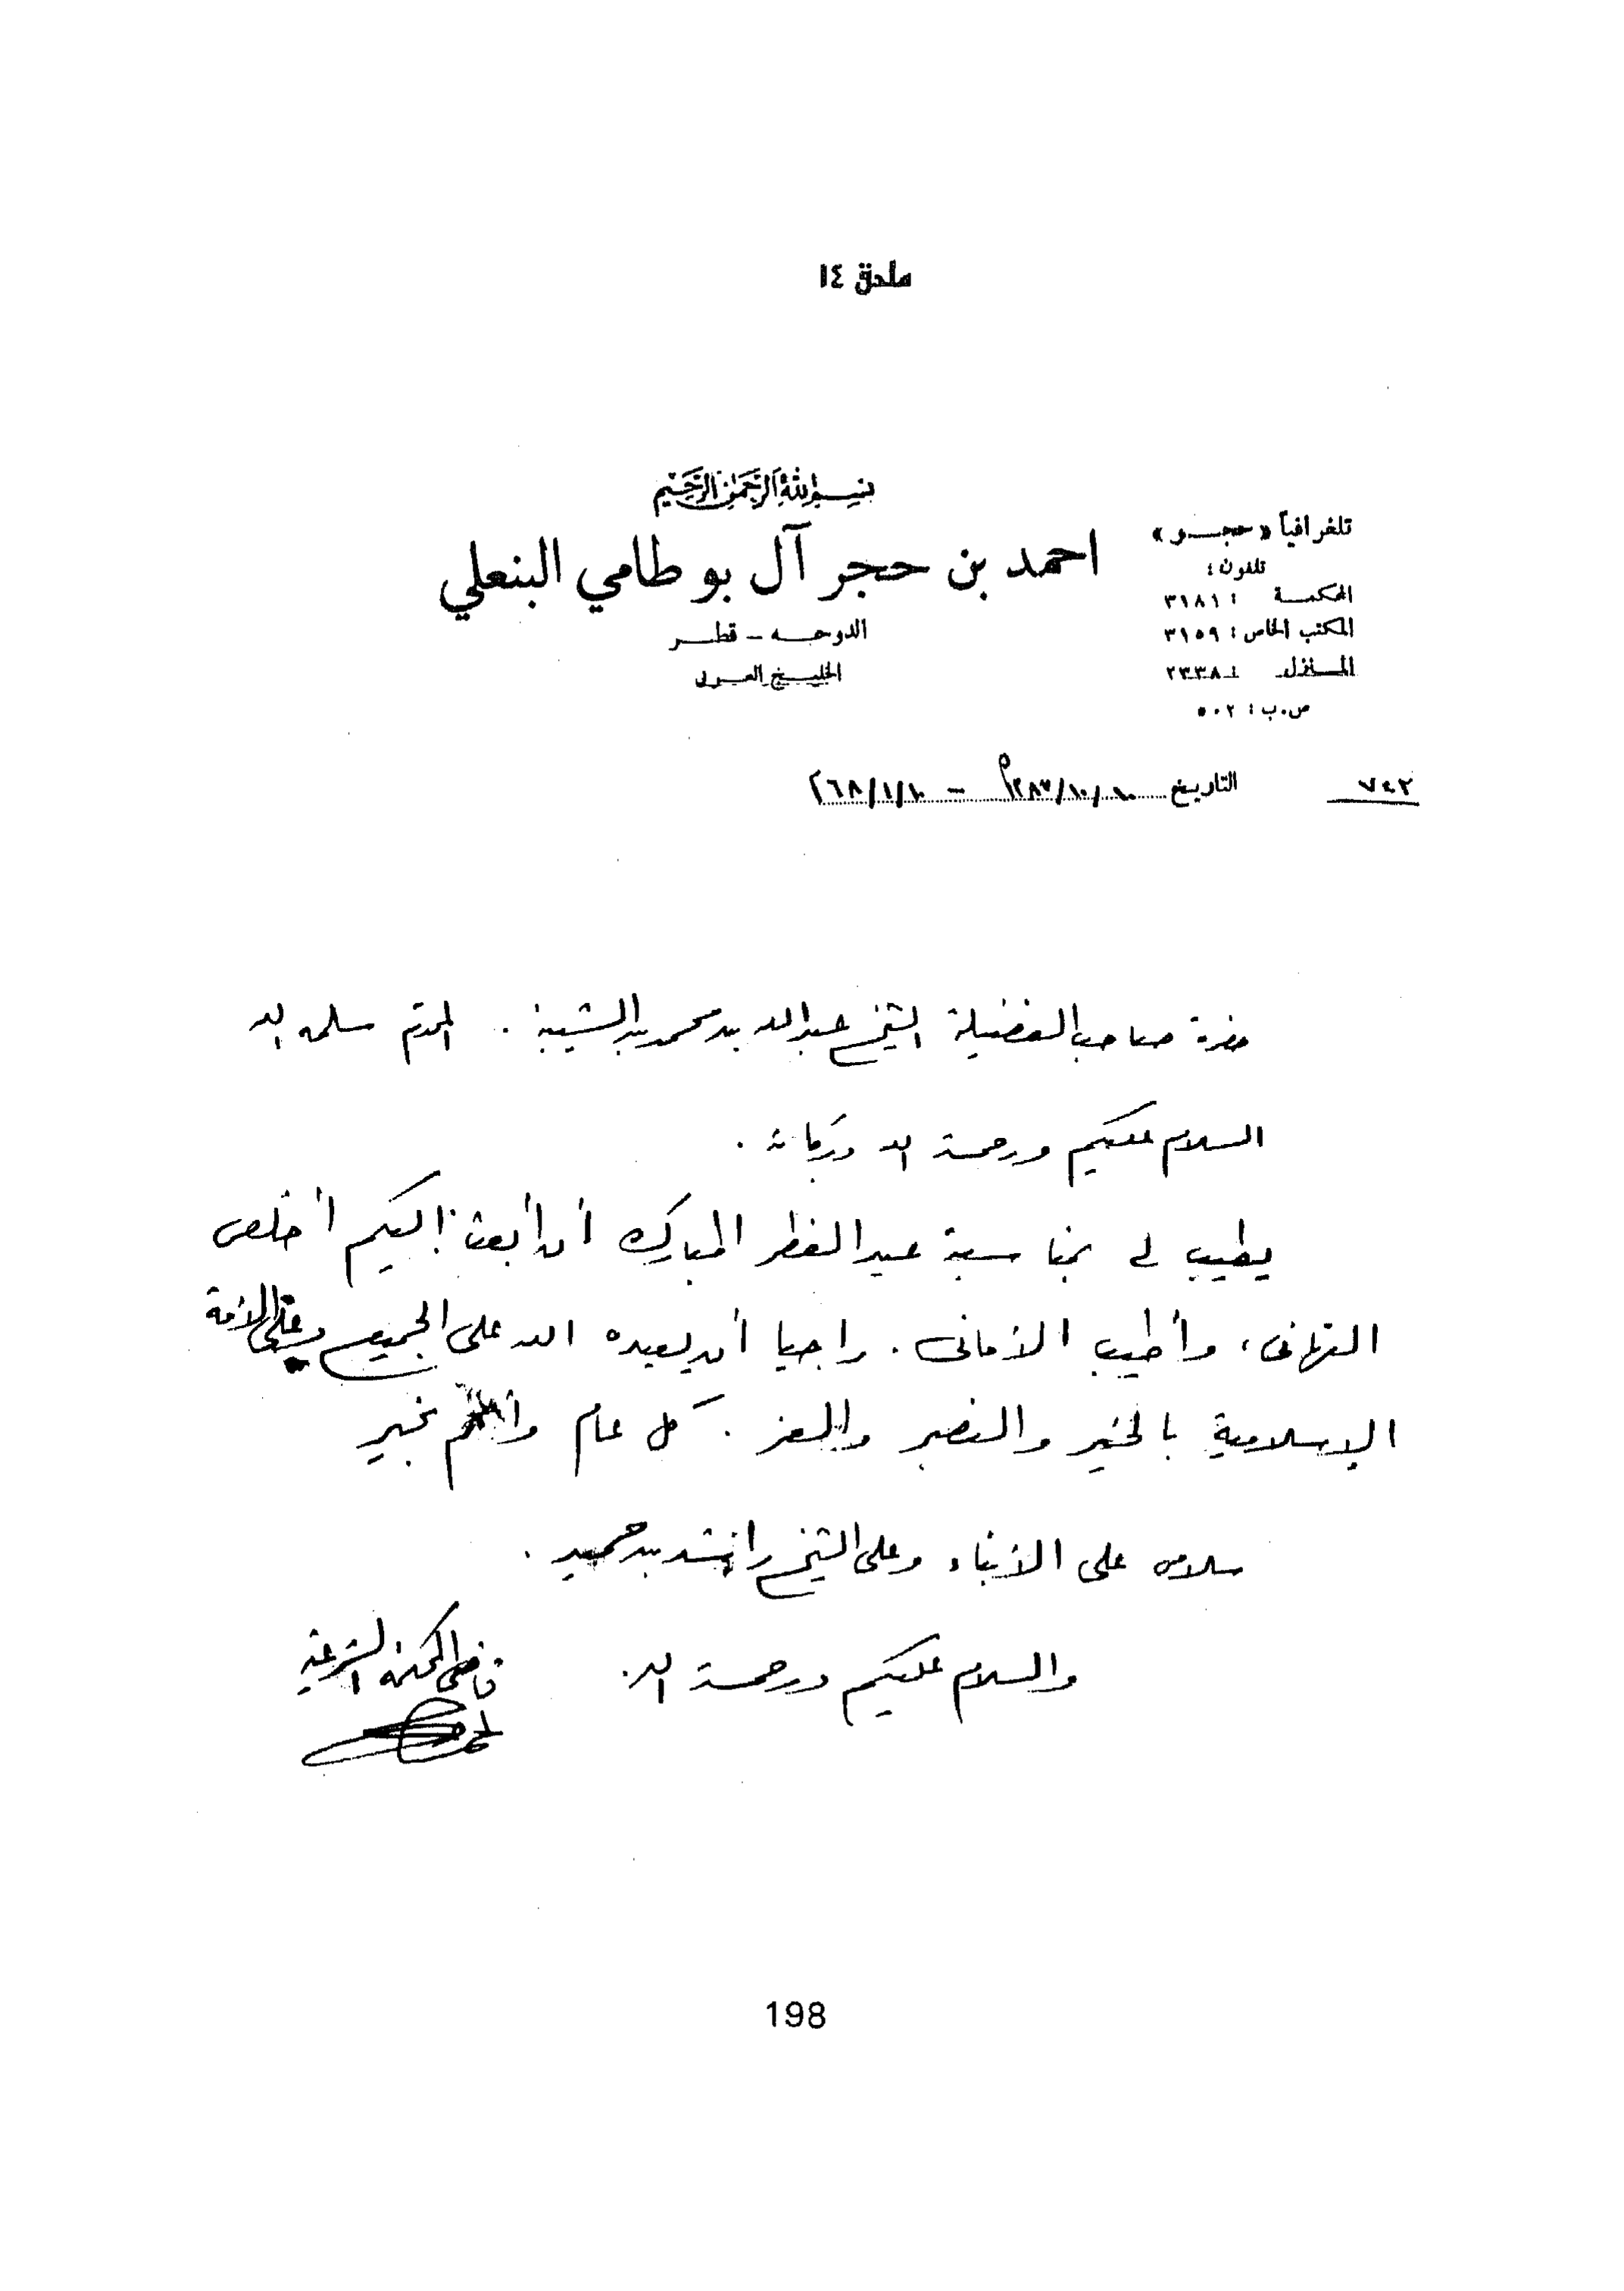 ملحق ١٤
بسم الله الرحمن الرحيم
احمد بن حجر آل بو طامي البنعلي
الدوحه - قطر
الخليج العربي
تلغرافياً «حجر»
تلفون:
المحكمة : ٣١٨١
المكتب الخاص : ٣١٥٩
المنزل : ٢٣٣٨
ص.ب : ٥٠٢
٧٤٢
التاريخ ١٠/١٠/١٣٨٧هـ - ١٠/١/٦٨م
حضرة صاحب الفضيلة الشيخ عبدالله بن محمد بن الشيبة . المحترم سلمه الله
السلام عليكم ورحمة الله وبركاته .
يطيب لي بمناسبة عيد الفطر المبارك أن أبعث إليكم أخلص
التهانى ، وأطيب الأمانى . راجيا أن يعيده الله على الجميع وعلى الأمة
الإسلامية بالخير والنصر والعز . كل عام وأنتم بخير
سلامى على الأبناء وعلى الشيخ راشد بن حميد .
والسلام عليكم ورحمة الله .
قاضى المحكمة الشرعية
198